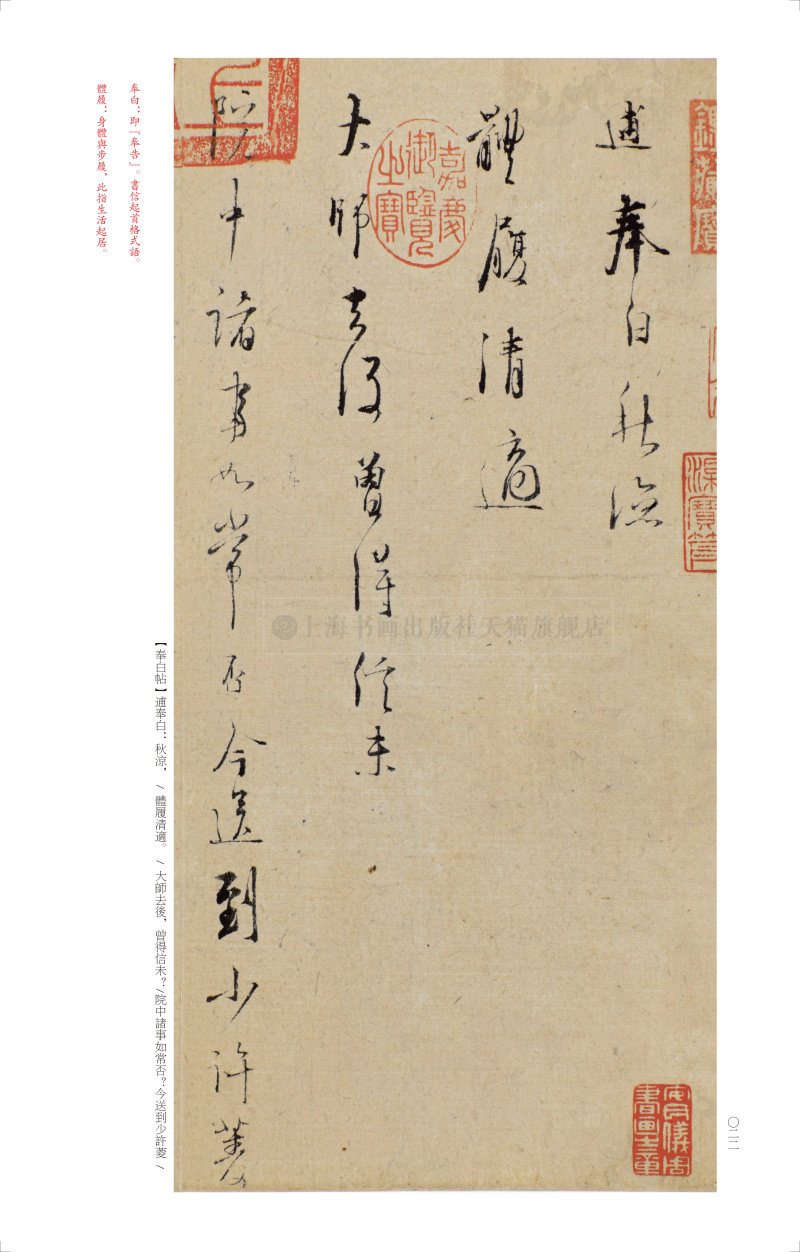 逋奉白秋涼
體履清適
大師去後曾得信未
院中諸事如常否今送到少許菱
嘉慶御覽之寶
安儀周書畫之章
上海书画出版社天猫旗舰店
奉白：即「奉告」。書信起首格式語。
體履：身體與步履，此指生活起居。
【奉白帖】逋奉白：秋涼，/體履清適。/大師去後，曾得信未？/院中諸事如常否？今送到少許菱/
〇二二